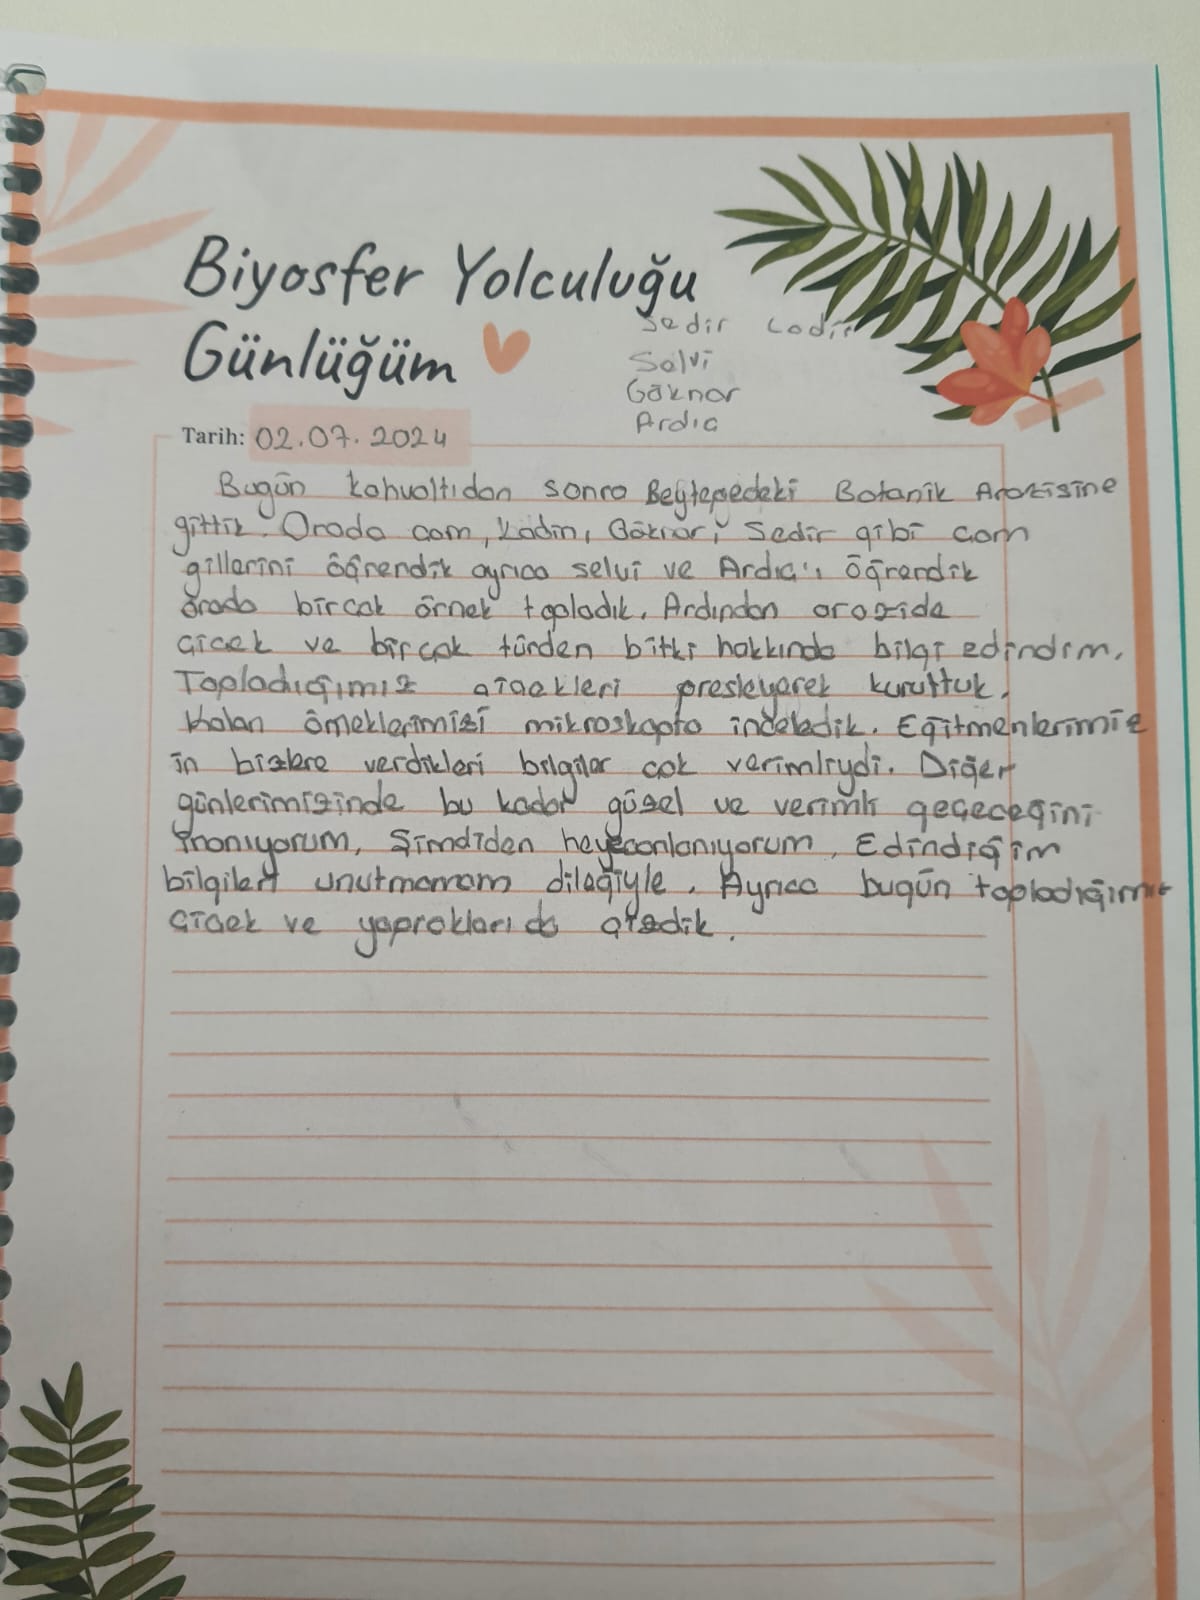 Biyosfer Yolculuğu
Günlüğüm
Sedir Ladin
Selvi
Göknar
Ardıc
Tarih: 02.07.2024
Bugün kahvaltıdan sonra Beytepedeki Botanik Arazisine
gittik. Orada cam, Ladin, Göknar, Sedir gibi cam
gillerini öğrendik ayrıca selvi ve Ardıc'ı öğrendik
orada bircok örnek topladık. Ardından arazide
cicek ve bir çok türden bitki hakkında bilgi edindim.
Topladığımız cicekleri presleyerek kuruttuk.
Kalan örneklerimizi mikroskopta inceledik. Eğitmenlerimiz
in bizlere verdikleri bilgiler cok verimliydi. Diğer
günlerimizinde bu kadar güzel ve verimli geçeceğini
inanıyorum, Şimdiden heyecanlanıyorum. Edindiğim
bilgileri unutmamam dileğiyle. Ayrıca bugün topladığımız
cicek ve yaprakları da cizdik.